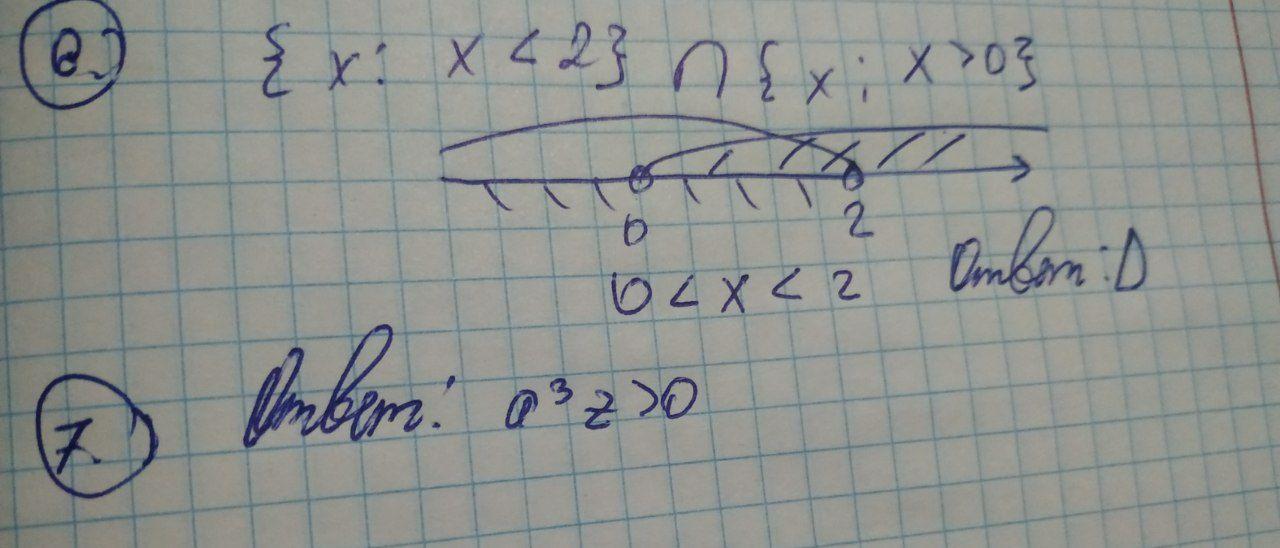 6. { x : x < 2 } ∩ { x ; x > 0 }
0 2
0 < x < 2 Ответ : D
7. Ответ : a³ z > 0